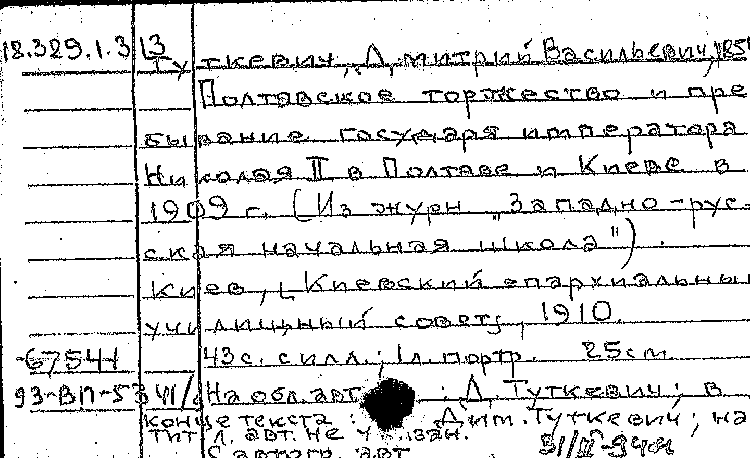 18.329.1.313
Туткевич, Дмитрий Васильевич, 185
Полтавское торжество и пре
бывание государя императора
Николая II в Полтаве и Киеве в
1909 г. (Из журн „Западно-рус-
ская начальная школа").
Киев, [Киевский епархиальны
училищный совет], 1910.
67541 43 с. с илл.; 1 л. портр. 25 см
93-ВП-5 На обл. авт. : Д. Туткевич; в
конце текста: Дим. Туткевич; на
тит л. авт. не указан.
С автогр. авт.